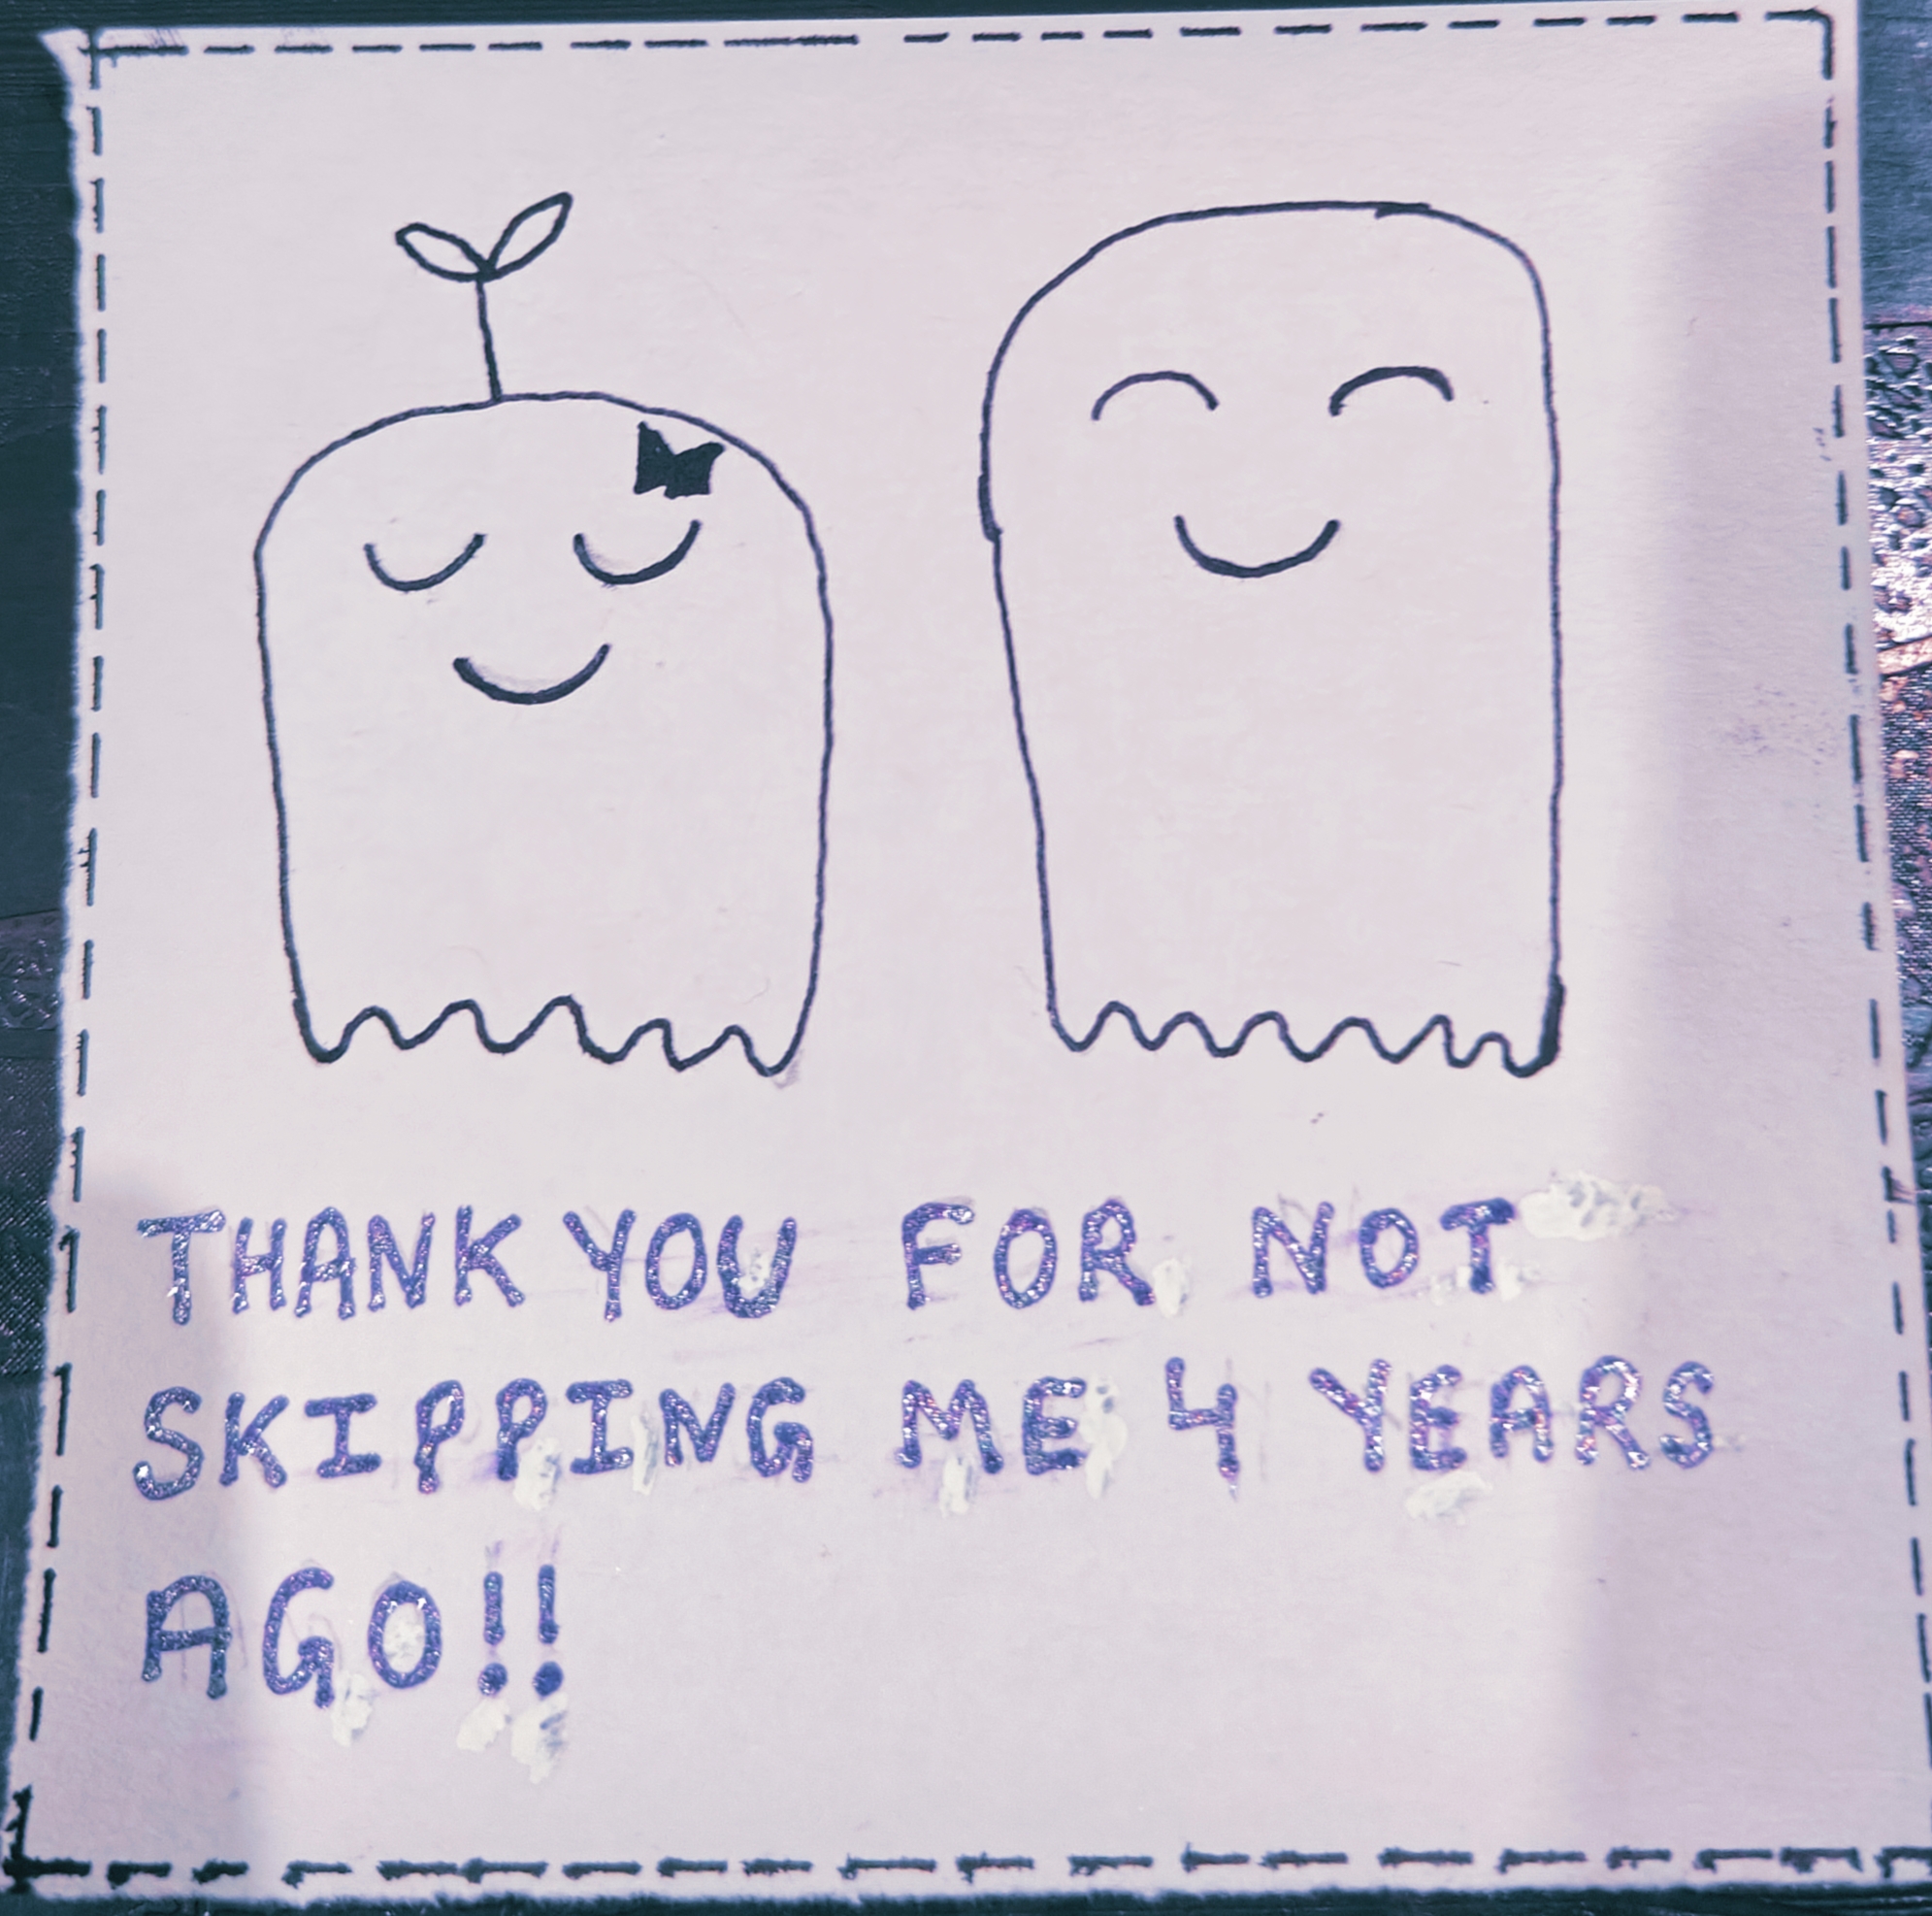 THANK YOU FOR NOT
SKIPPING ME 4 YEARS
AGO!!